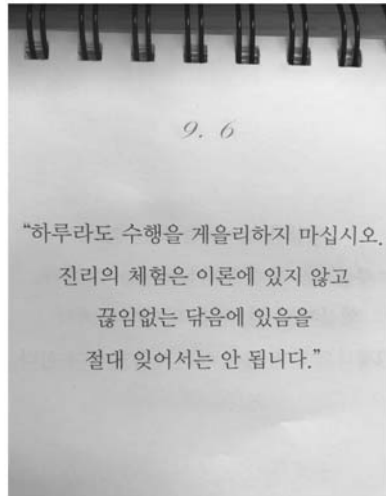 9. 6
“하루라도 수행을 게을리하지 마십시오.
진리의 체험은 이론에 있지 않고
끊임없는 닦음에 있음을
절대 잊어서는 안 됩니다.”